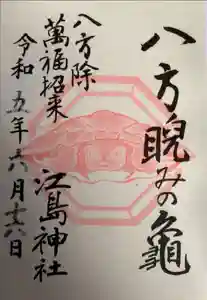 八方睨みの亀
八方除
萬福招来
江島神社
令和五年六月十六日